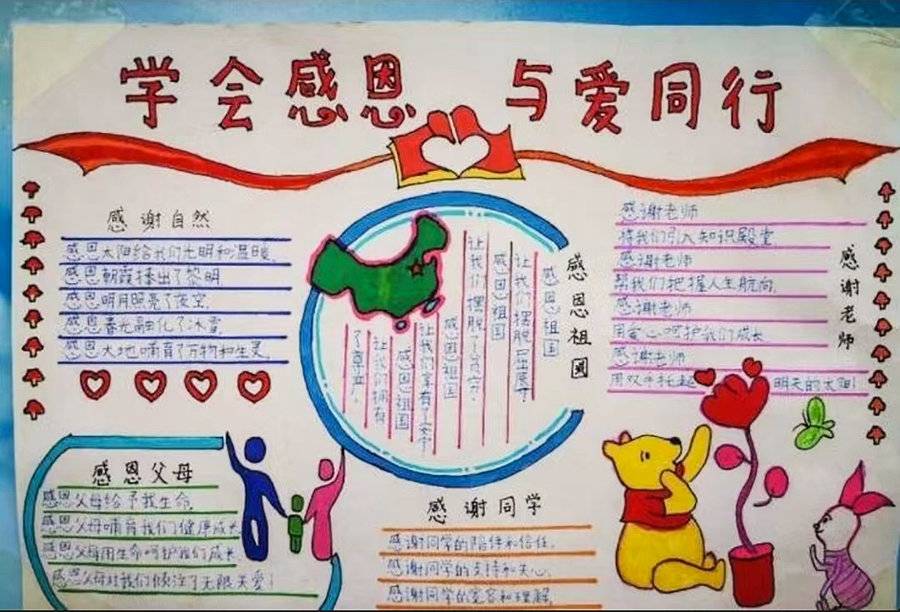 学会感恩 与爱同行
感谢自然
感恩太阳给我们光明和温暖,
感恩朝霞播出了黎明
感恩明月照亮了夜空,
感恩春光融化了冰雪,
感恩大地哺育了万物和生灵,
感恩祖国
感恩祖国
让我们摆脱屈辱,
感恩祖国
让我们摆脱了贫穷,
感恩祖国
让我们享有了安宁
感恩祖国
让我们拥有
了尊严,
感谢老师
感谢老师
将我们引入知识殿堂,
感谢老师
帮我们把握人生航向,
感谢老师
用爱心呵护我们成长
感谢老师
用双手托起 明天的太阳!
感恩父母
感恩父母给予我生命,
感恩父母哺育我们健康成长
感恩父母用生命呵护我们成长
感恩父母对我们倾注了无限关爱!
感谢同学
感谢同学的陪伴和信任,
感谢同学的支持和关心,
感谢同学的宽容和理解,